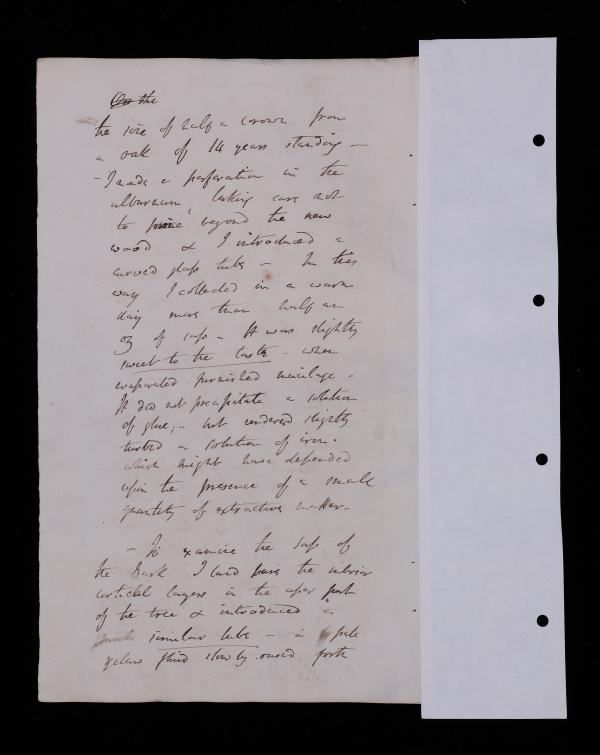 On the
the size of half a crown from
a oak of 14 years standing —
– I made a perforation in the
alburnum, taking care not
to beyond the new
wood & I introduced a
curved glass tube – In this
way I collected in a warm
day more than half an
oz of sap – It was slightly
sweet to the taste – when
evaporated furnished mucilage –
It did not precipitate a solution
of glue; – but rendered slightly
turbid a solution of iron.
which might have depended
upon the presence of a small
quantity of extractive matter –
– To examine the Sap of
the Bark I laid bare the interior
cortical layers in the upper part
of the tree & introduced a
similar tube – a pale
yellow fluid slowly oused forth